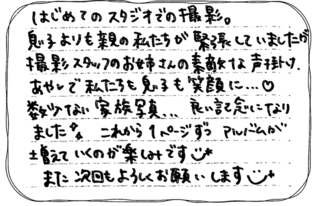 はじめてのスタジオでの撮影。
息子よりも親の私たちが緊張していましたが
撮影スタッフのお姉さんの素敵な声掛け、
あやしで私たちも息子も笑顔に…♡
数少ない家族写真… 良い記念になり
ました これから1ページずつ アルバムが
増えていくのが楽しみです
また次回もよろしくお願いします